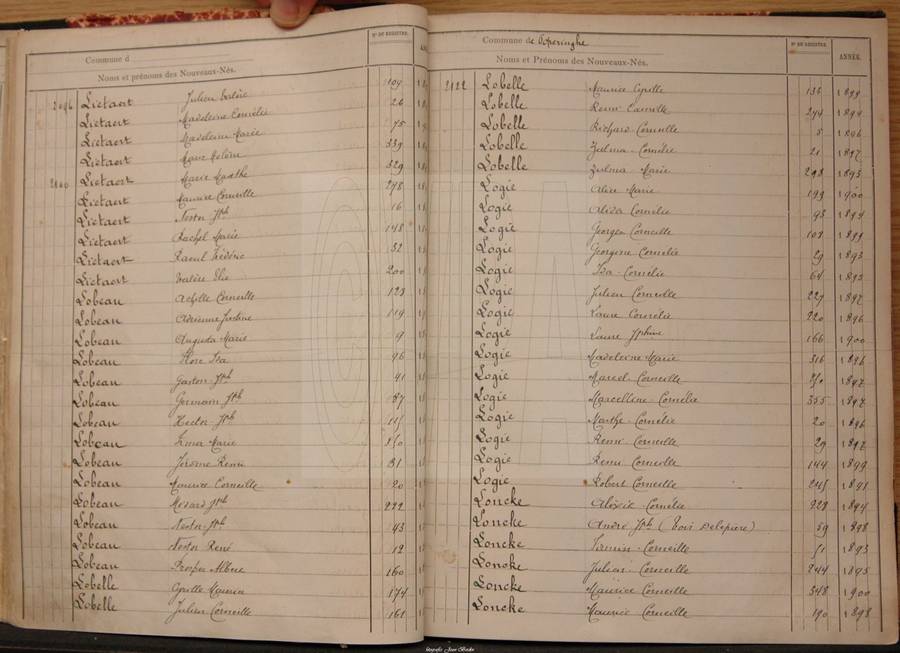 Commune d
Noms et prénoms des Nouveaux-Nés.
N° DU REGISTRE.
Lietaert Julien Valère 109
Lietaert Madeleine Cornélie 26
Lietaert Madeleine Marie 75
Lietaert Marie 339
Lietaert Marie Marthe 329
Lietaert Maurice Corneille 278
Lietaert Nestor Jph 16
Lietaert Rachel Marie 148
Lietaert Raoul Frédéric 32
Lietaert Valère Elie 200
Lobeau Achille Corneille 123
Lobeau Adrienne Justine 119
Lobeau Augusta Marie 9
Lobeau Flore Ida 96
Lobeau Gaston Jph 41
Lobeau Germain Jph 87
Lobeau Hector Jph 115
Lobeau Irma Marie 150
Lobeau Jérome Remi 31
Lobeau Maurice Corneille 20
Lobeau Médard Jph 222
Lobeau Nestor Jph 43
Lobeau Nestor René 12
Lobeau Prosper Albert 160
Lobelle Cyrille Maurice 174
Lobelle Julien Corneille 161
Commune de Poperinghe
Noms et Prénoms des Nouveaux-Nés.
N° DU REGISTRE.
ANNÉE.
2122 Lobelle Maurice Cyrille 136 1899
Lobelle Remi Camille 274 1894
Lobelle Richard Corneille 5 1896
Lobelle Zulma Cornélie 21 1897
Lobelle Zulma Marie 298 1893
Logie Alice Marie 199 1900
Logie Alida Cornélie 93 1894
Logie Georges Corneille 108 1899
Logie Georgine Cornélie 29 1893
Logie Ida Cornélie 64 1892
Logie Julien Corneille 227 1892
Logie Laure Cornélie 220 1896
Logie Laure Jphine 166 1900
Logie Madeleine Marie 316 1896
Logie Marcel Corneille 1897
Logie Marcelline Cornélie 355 1897
Logie Marthe Cornélie 20 1896
Logie Remi Corneille 29 1892
Logie Remi Corneille 144 1899
Logie Robert Corneille 245 1891
Loncke Aloïsie Cornélie 228 1894
Loncke André Jph (Voir Delepiere) 59 1898
Loncke Firmin Corneille 51 1893
Loncke Julien Corneille 244 1895
Loncke Maurice Corneille 348 1900
Loncke Maurice Corneille 190 1898